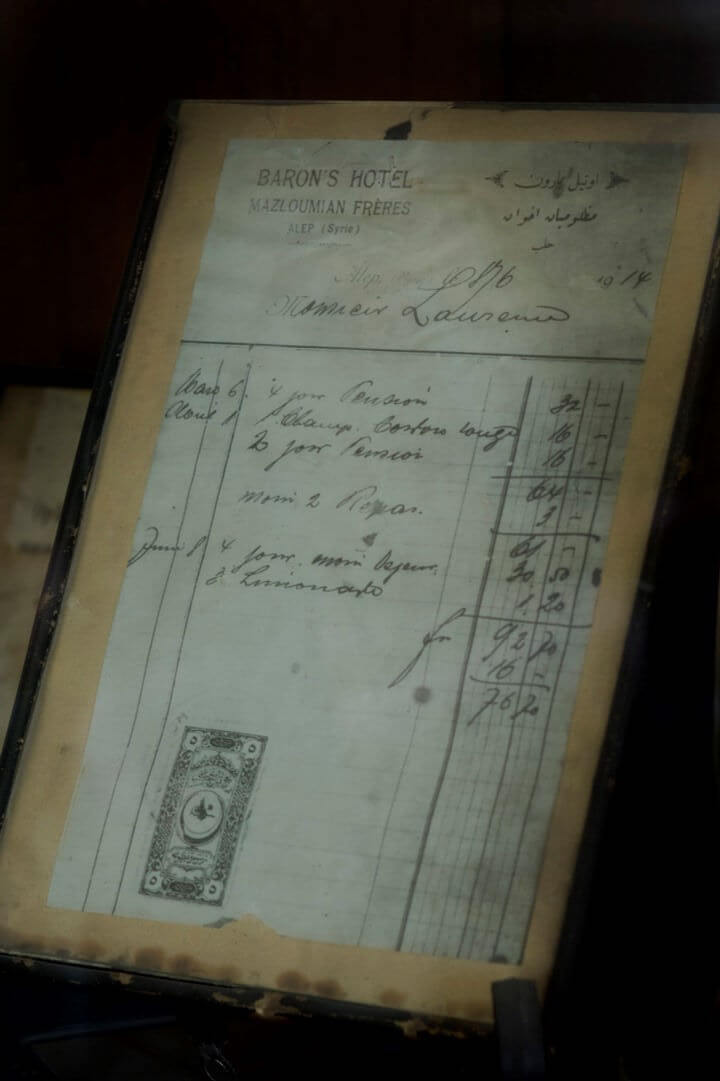 BARON'S HOTEL
MAZLOUMIAN FRÈRES
ALEP (Syrie)
اوتيل بارون
مظلوميان اخوان
حلب
Alep, 1914
Monsieur Laurence
Mars 6. 4 jour Pension 32 -
Avril 1 1 Champ. Cordon rouge 16 -
2 jour Pension 16 -
64 -
moin 2 Repas. 3 -
61 -
Juin 8 4 jour. moin Dejeur. 30 50
3 Limonade 1. 20
fr 92 70
16 -
76 70